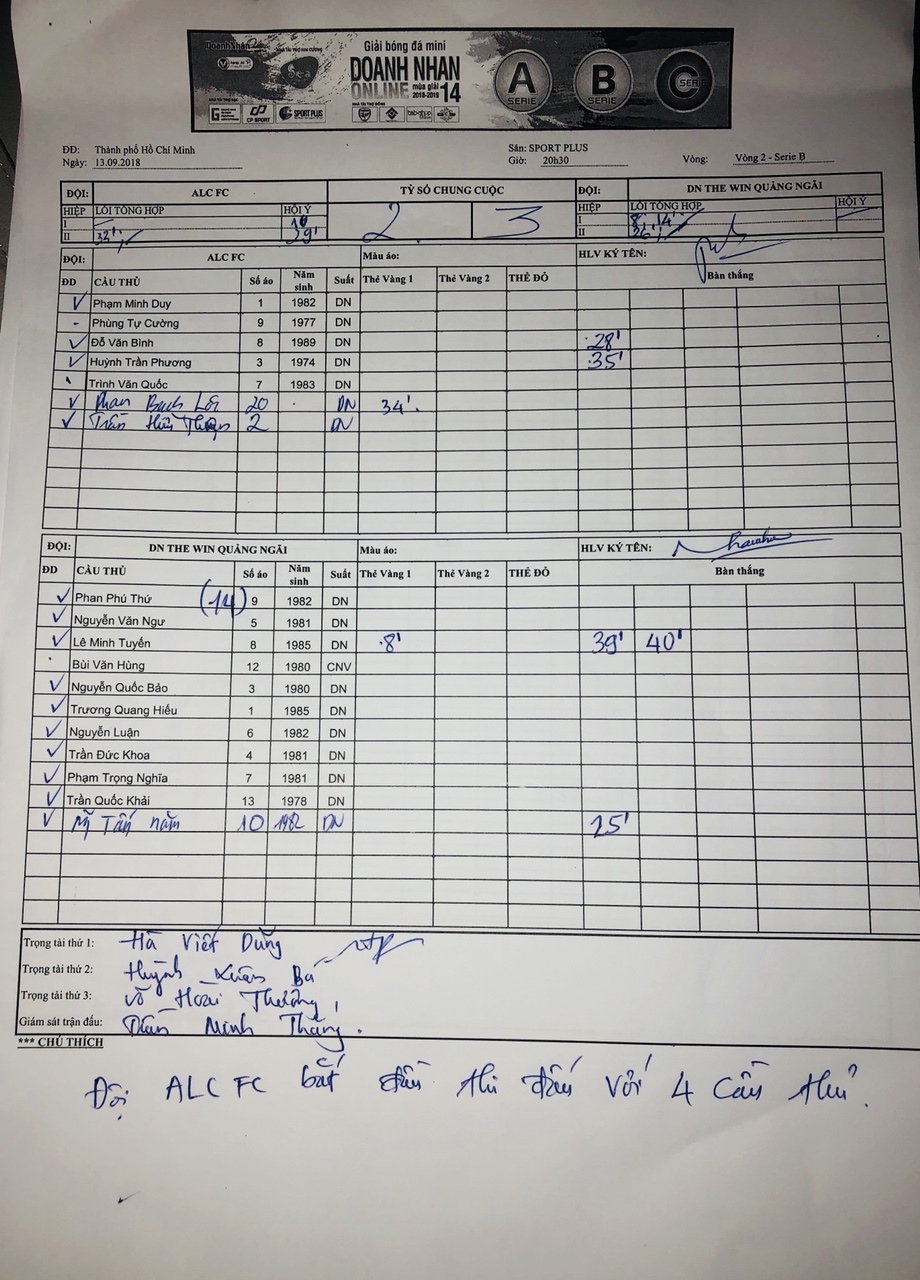 Doanh Nhân
NHÀ TÀI TRỢ KIM CƯƠNG
Sea
Giải bóng đá mini
DOANH NHAN
ONLINE mùa giải 2018-2019 14
NHÀ TÀI TRỢ BẠC
NHÀ TÀI TRỢ ĐỒNG
CP SPORT
SPORT PLUS
A SERIE
B SERIE
C SERIE
ĐĐ: Thành phố Hồ Chí Minh Sân: SPORT PLUS
Ngày: 13.09.2018 Giờ: 20h30 Vòng: Vòng 2 - Serie B
ĐỘI: ALC FC TỶ SỐ CHUNG CUỘC ĐỘI: DN THE WIN QUẢNG NGÃI
HIỆP LỖI TỔNG HỢP HỘI Ý 2 3 HIỆP LỖI TỔNG HỢP HỘI Ý
I I 8', 14'
II 32', 39' II 36',
ĐỘI: ALC FC Màu áo: HLV KÝ TÊN:
ĐD CẦU THỦ Số áo Năm sinh Suất Thẻ Vàng 1 Thẻ Vàng 2 THẺ ĐỎ Bàn thắng
Phạm Minh Duy 1 1982 DN
Phùng Tự Cường 9 1977 DN
Đỗ Văn Bình 8 1989 DN 28'
Huỳnh Trần Phương 3 1974 DN 35'
Trình Văn Quốc 7 1983 DN
Phan Bạch Lợi 20 DN 34'
Trần Hữu 2 DN
ĐỘI: DN THE WIN QUẢNG NGÃI Màu áo: HLV KÝ TÊN:
ĐD CẦU THỦ Số áo Năm sinh Suất Thẻ Vàng 1 Thẻ Vàng 2 THẺ ĐỎ Bàn thắng
Phan Phú Thứ (14) 9 1982 DN
Nguyễn Văn Ngư 5 1981 DN
Lê Minh Tuyến 8 1985 DN 8' 39' 40'
Bùi Văn Hùng 12 1980 CNV
Nguyễn Quốc Bảo 3 1980 DN
Trương Quang Hiếu 1 1985 DN
Nguyễn Luận 6 1982 DN
Trần Đức Khoa 4 1981 DN
Phạm Trọng Nghĩa 7 1981 DN
Trần Quốc Khải 13 1978 DN
Tấn năm 10 1982 DN 25'
Trọng tài thứ 1: Hà Viết Dũng
Trọng tài thứ 2: Huỳnh Xuân Bá
Trọng tài thứ 3: Võ Hoài Thương
Giám sát trận đấu: Trần Minh Thắng.
*** CHÚ THÍCH
Đội ALC FC bắt đầu thi đấu với 4 cầu thủ.